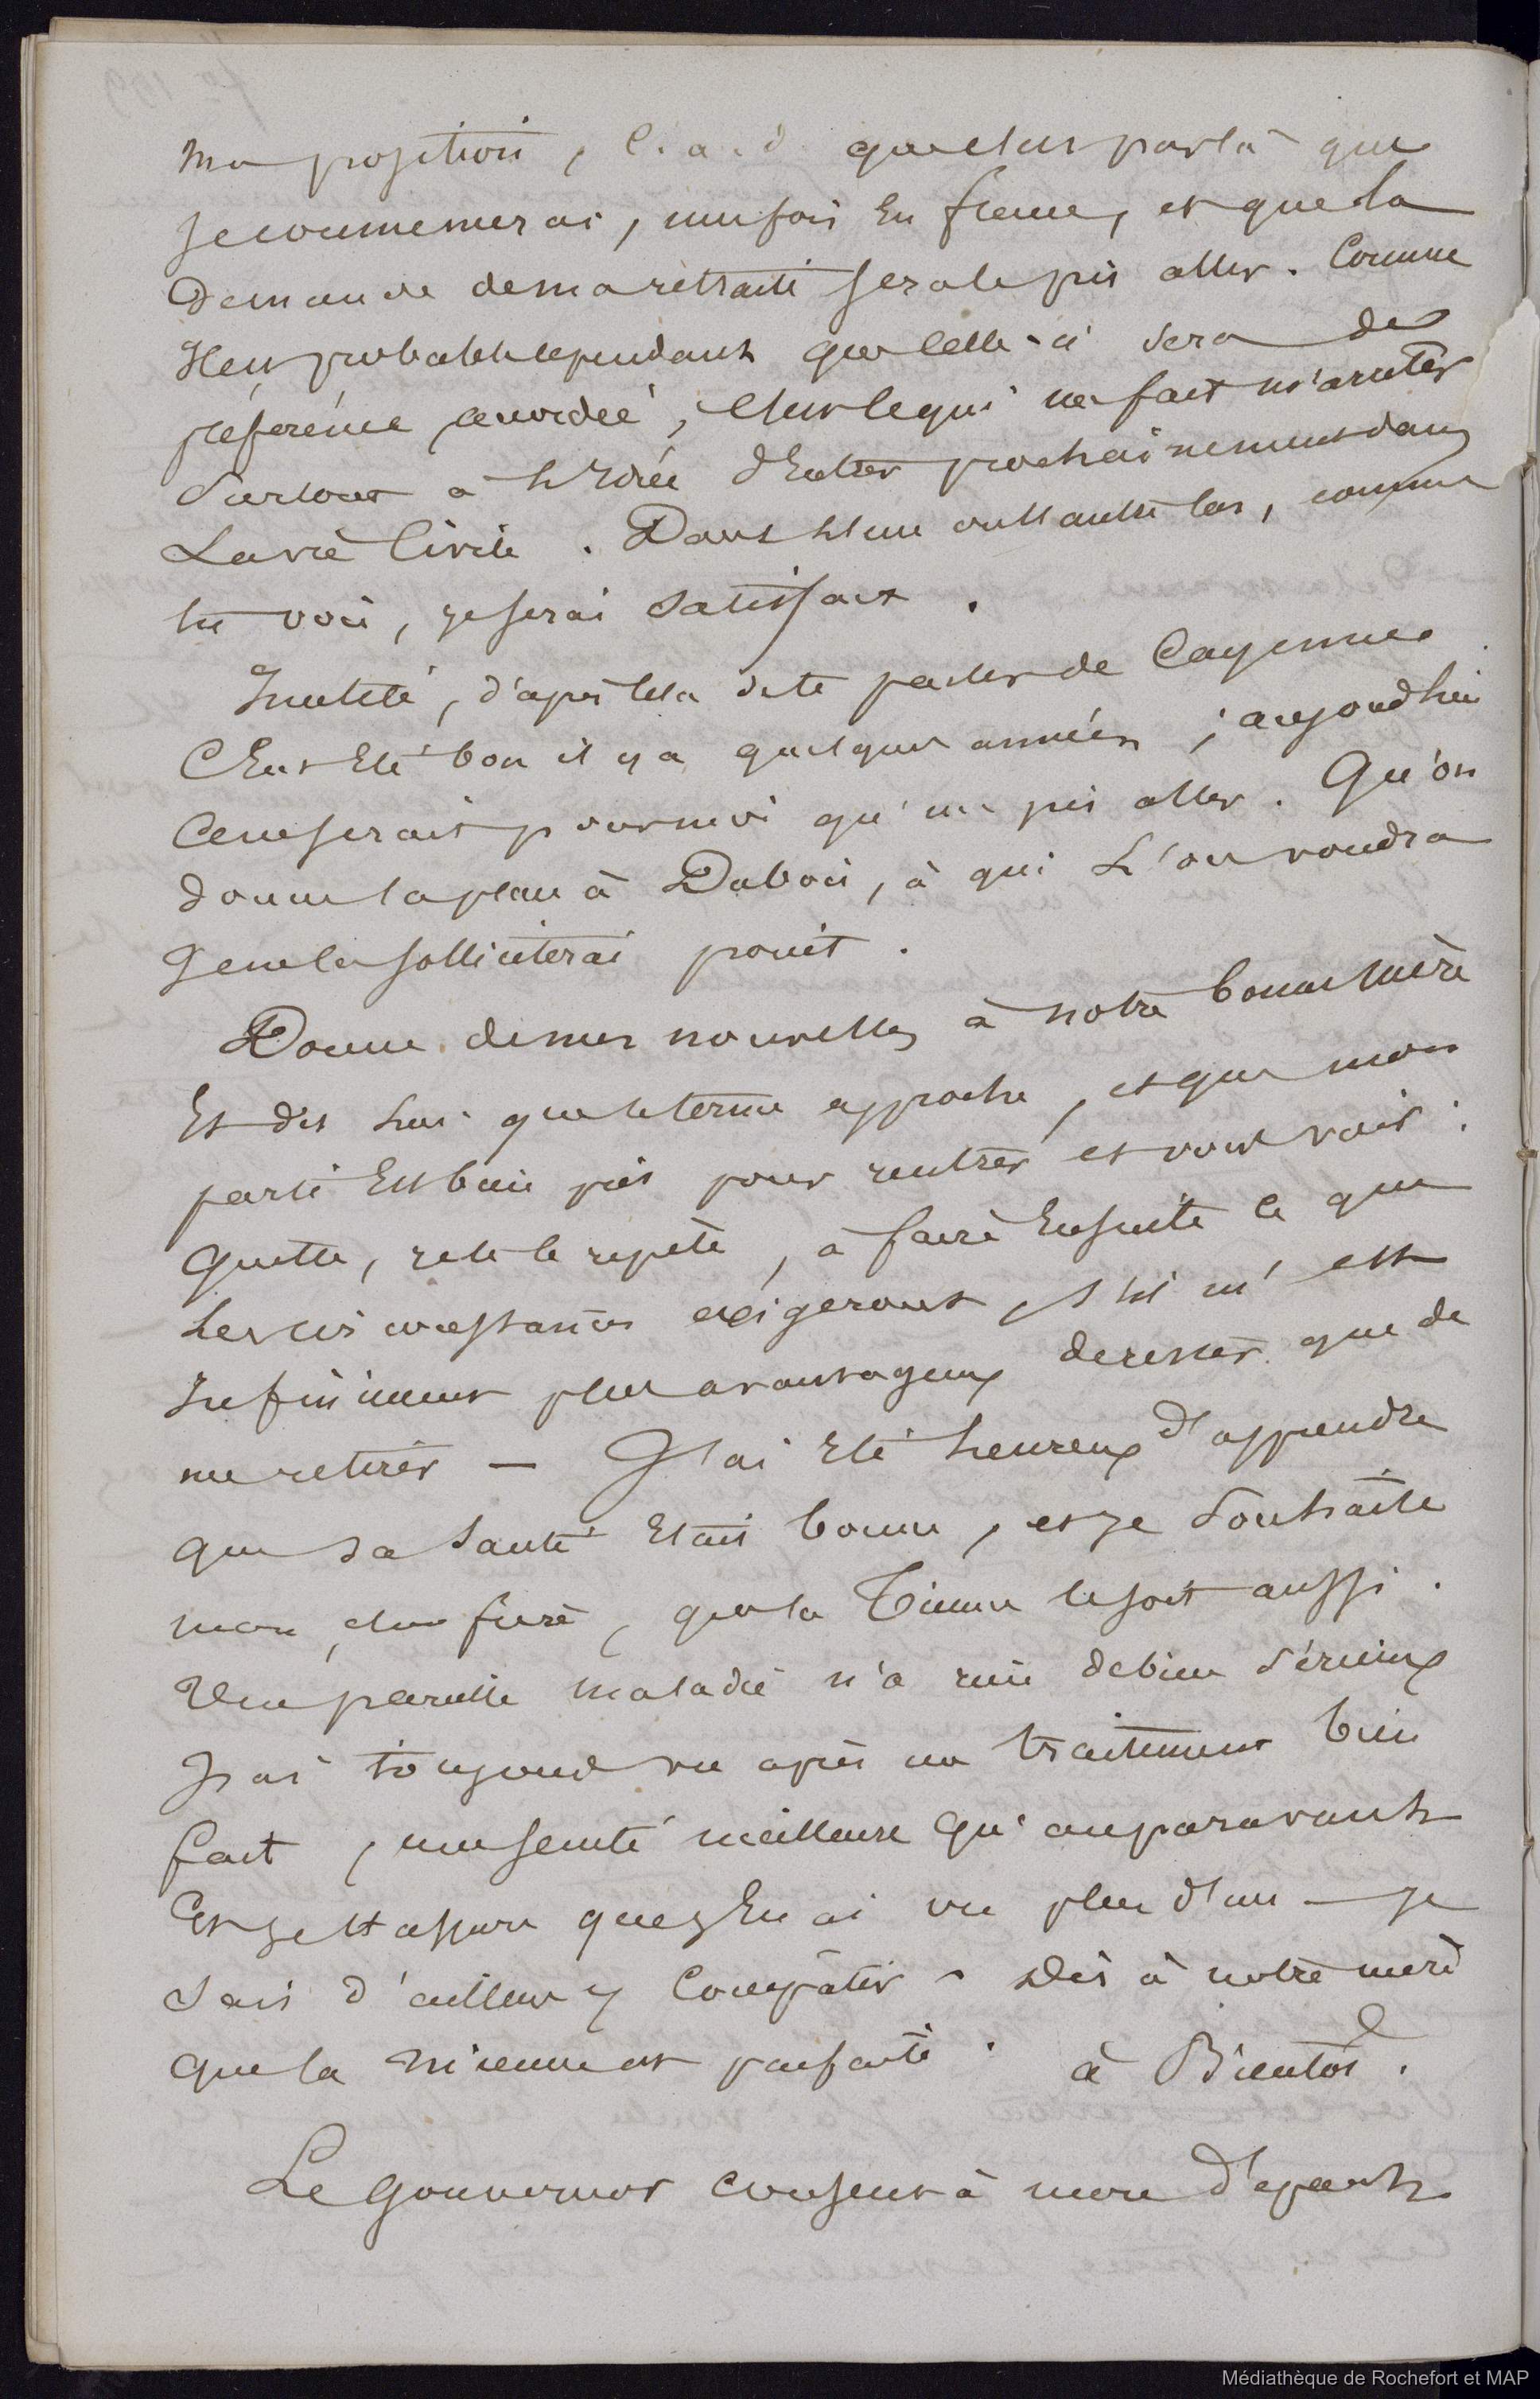 ma position, C. a. d. que c'est par là que
je commencerai, une fois En france, et que la
Demande de ma retraite sera le pis aller. Comme
Il est probable cependant que celle-ci sera de
préférence accordée, c'est ce qui me fait m'arrêter
Surtout à l'Idée d'Entrer prochainement dans
La vie Civile. Dans l'un ou l'autre cas, comme
tu vois, je serai Satisfait.
Inutile, d'après cela de te parler de Cayenne
C'Eut Eté bon il y a quelques années ; aujourd'hui
Ce ne serait pour moi qu'un pis aller. Qu'on
donne la place à Dubois, à qui L'on voudra
Je ne la solliciterai point.
Donne de mes nouvelles à notre bonne Mère
Et dis lui que le terme approche, et que mon
parti Est bien pris pour rentrer et vous voir ;
Quitte, je te le repète, à faire Ensuite ce que
Les circonstances exigeront, s'il m'est
Infiniment plus avantageux de rester que de
me retirer — J'ai Eté heureux d'apprendre
que sa Santé Etait bonne, et je Souhaite
mon cher frère, que la Tienne le soit aussi.
Une pareille maladie n'a rien de bien Sérieux
J'ai toujours vu après un traitement bien
fait, une santé meilleure qu'auparavant
Et je t'assure que j'En ai vu plus d'un — je
Sais d'ailleurs y Compâtir. Dis à notre mère
Que la Mienne est parfaite. à Bientôt.
Le Gouverneur consent à mon Départ